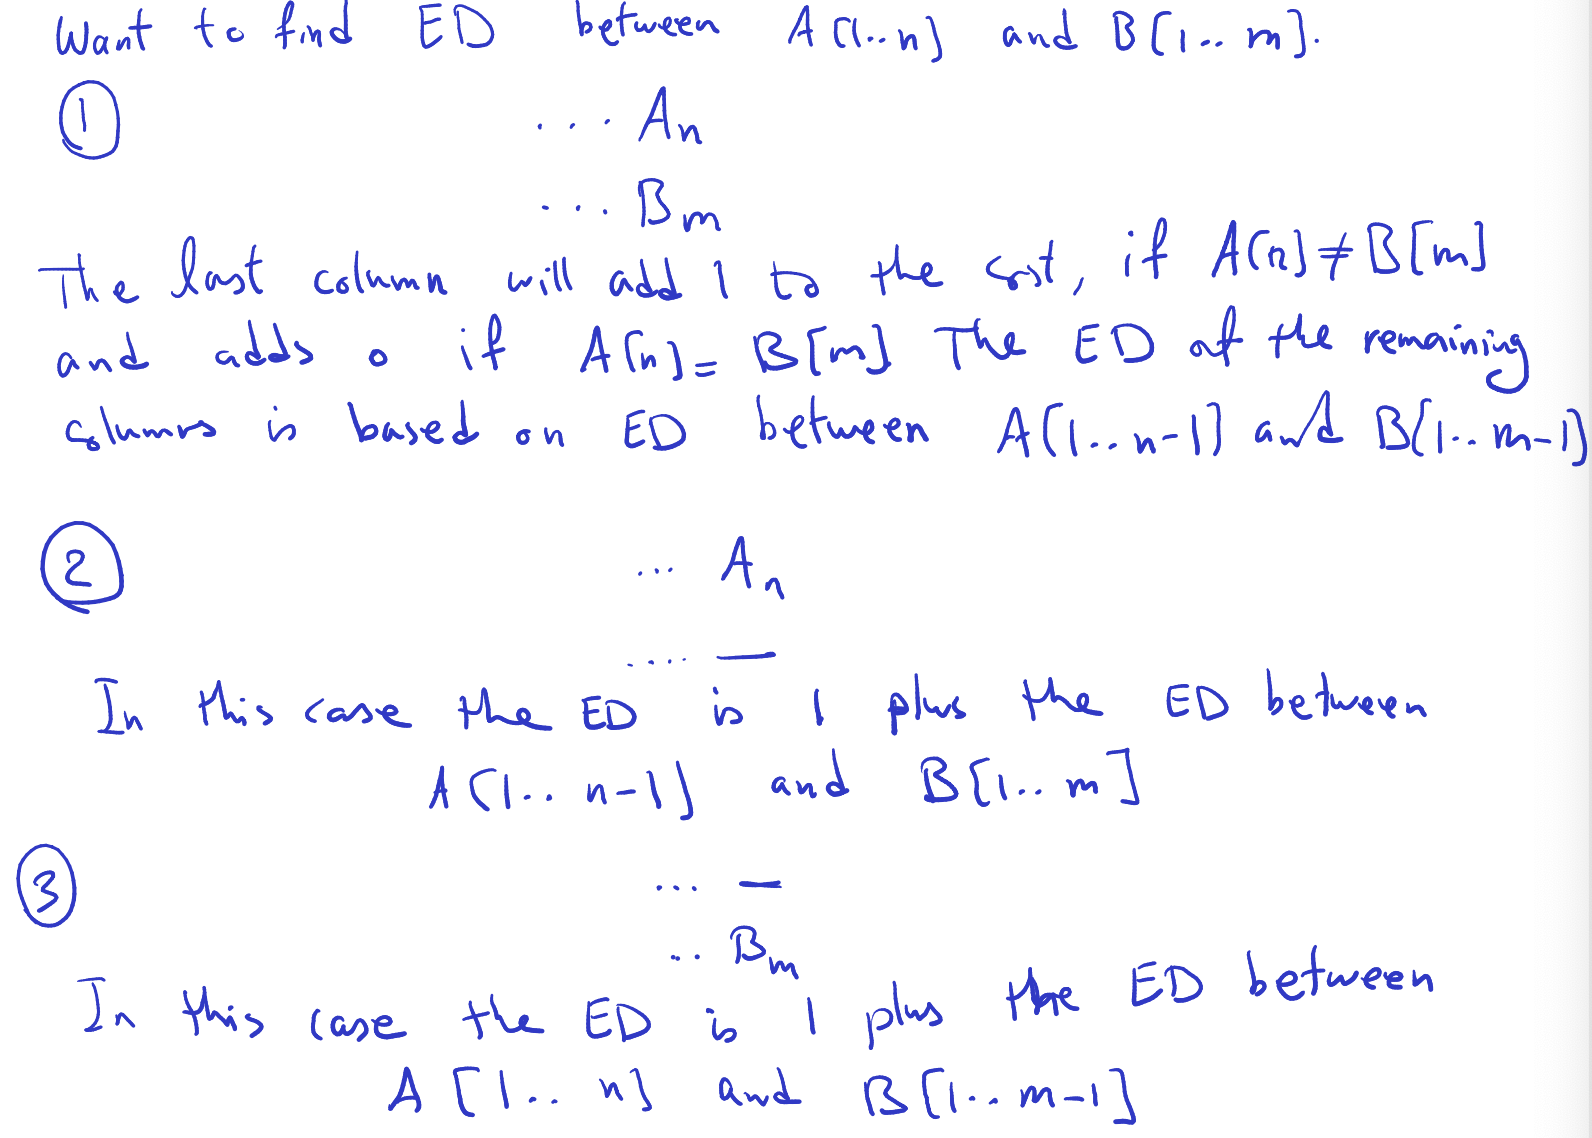 Want to find ED between A[1..n] and B[1..m].
1
... An
... Bm
The last column will add 1 to the cost, if A[n] ≠ B[m]
and adds 0 if A[n] = B[m] The ED of the remaining
columns is based on ED between A[1..n-1] and B[1..m-1]
2
... An
.... —
In this case the ED is 1 plus the ED between
A[1..n-1] and B[1..m]
3
... —
.. Bm
In this case the ED is 1 plus the ED between
A[1..n] and B[1..m-1]